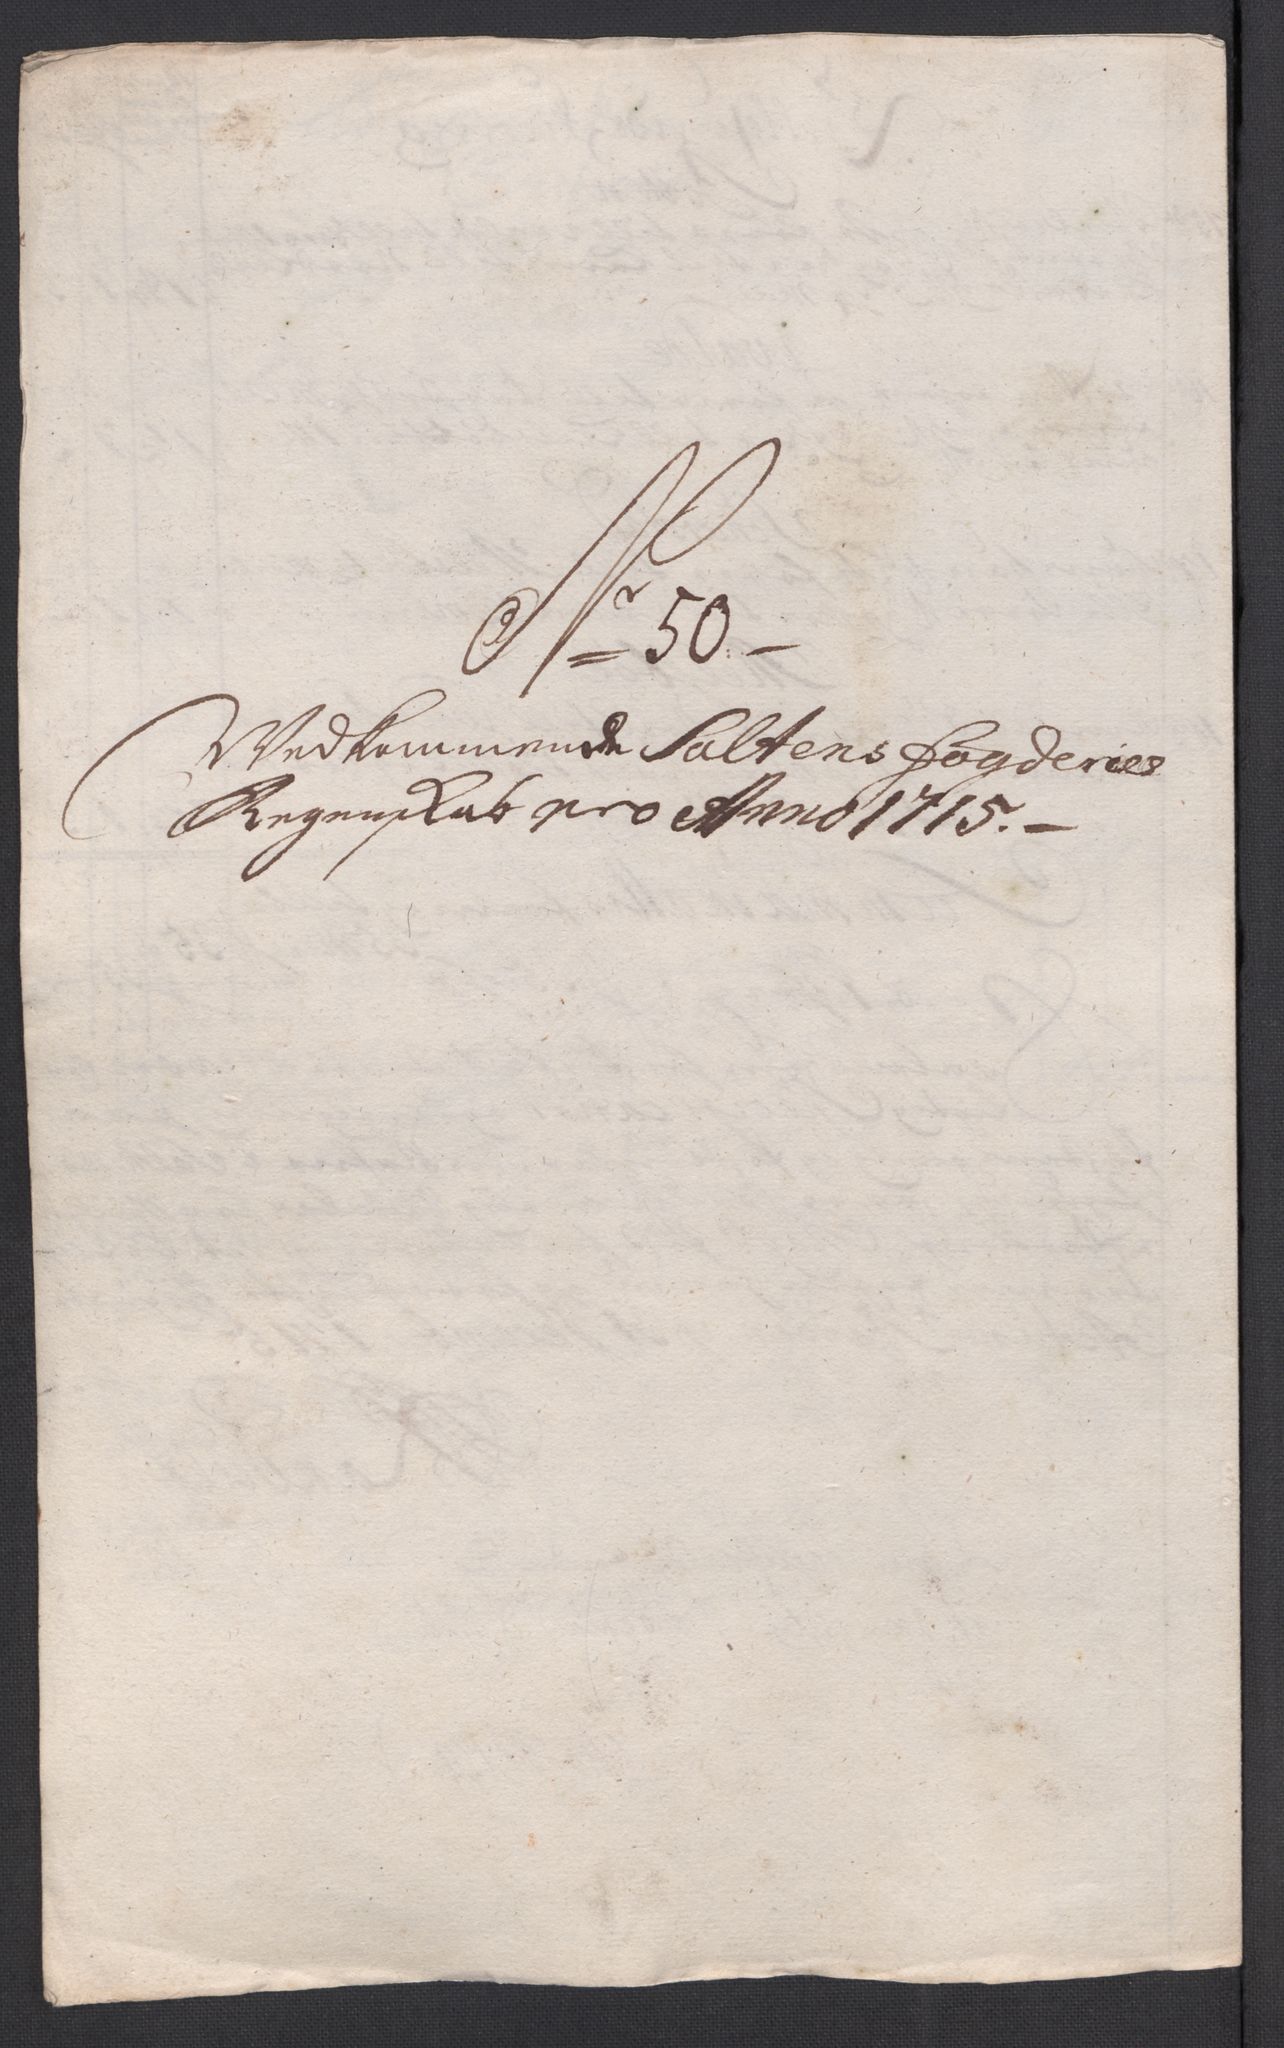 Nr 50.-
Vedkommende Saltens fogderies
Regenskab pro Anno 1715.-